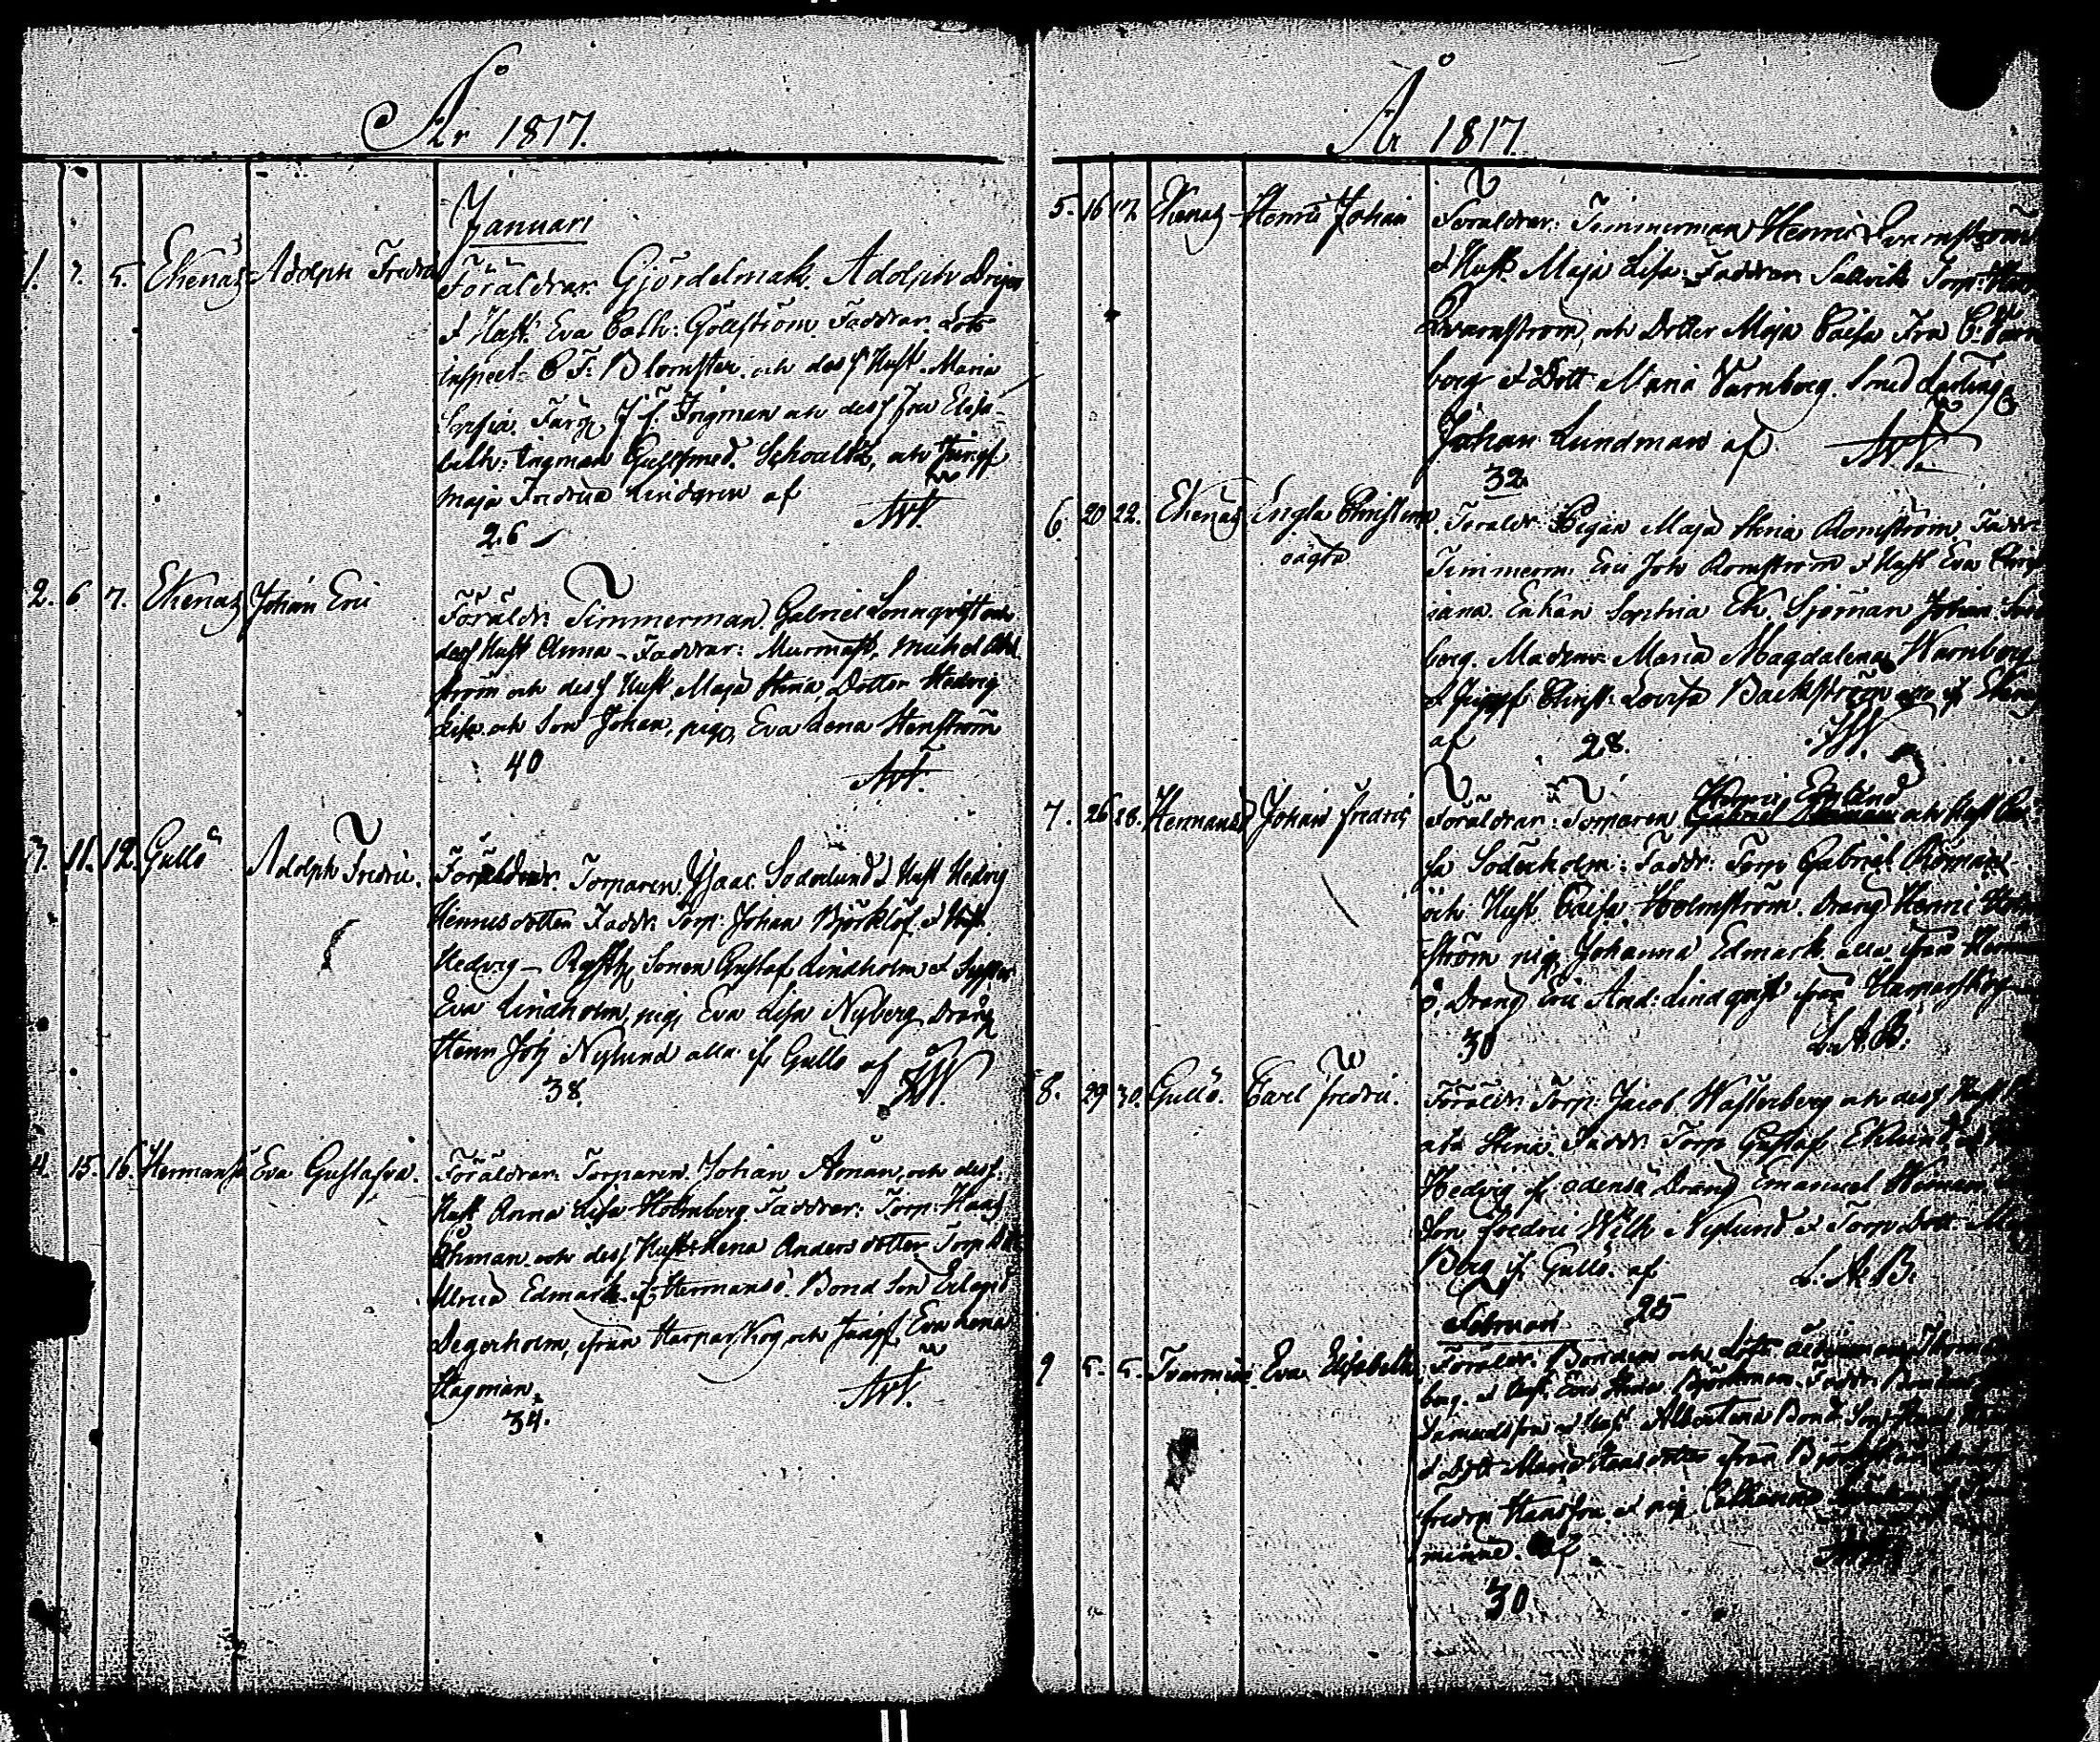 År 1817.
Januari
1. 2. 5. Ekenäs Adolph Fredric
Föräldrar: Gjördelmak. Adolph
& Hust. Eva Cath: Göllström. Faddrar. Lots
inspect. C. F. Blomster. och dess Hust. Maria
Sophia. Färg. J. J. Ingman och dess Fru Elisa-
beth: Ingman Gullsmed. Schoultz, och Jungf
Maja Fredrica Lindgren af
26
2. 6 7. Ekenäs Johan Eric
Föräldr: Timmerman Gabriel Lönnqvist och
dess Hust Anna - Faddrar: Murmäst. Michel
ström och dess Hust Maja Stina, Dotter Hedvig
Lisa och Son Johan, pig, Eva Lena Stenström
40
3. 11. 12. Gullö Adolph Fredric.
Föräldrar. Torparen Isaac Söderlund & Hust Hedvig
Henricsdotter Faddr: Torp: Johan Björklöf & Hust.
Hedvig - Sonen Gustaf Lindholm & Syster
Eva Lindholm, pig, Eva Lisa Nyberg Dräng
Henr Joh Nylund alla if Gullö af
38.
4. 15. 16. Hermansö Eva Gustafva.
Föräldrar: Torparen Johan Åman, och dess
Hust Anna Lisa Holmberg Faddrar: Torp: Hans
Öhman och dess Hust: Lena Andersdotter Torp
Ulrica Edmark if Hermansö. Bond Son
Degerholm, ifrån Harparskog, och Jungf Eva Lena
Hagman.
34.
År 1817
5. 16 17. Ekenäs Henric Johan
Föräldrar: Timmerman Henric Qvarnström
& Hust. Maja Lisa. Faddrar Torp:
Qvarnström, och Dotter Maja Caisa Fru C.
borg & Dott Maria Varnborg. Smed
Johan Lundman af
32.
6. 20 22. Ekenäs Engla Christina
oägta
Föräldr Pigan Maja Stina Romström. Faddr:
Timmerm. Eric Joh Romström & Hust Eva
iana. Enkan Sophia Ek. Sjöman Johan
berg. Madame Maria Magdalena Warnberg
& Jungf Christ: Lovisa Backström alla if Ekenäs
af 28.
7. 26 28. Hermansö Johan Fredric
Henric Enlund
Föräldrar: Torparen och Hust
sa Söderholm: Faddr: Torp Gabriel
och Hust. Caisa Holmström. Dräng Henric
ström pig Johanna Edmark alla ifrån
ö. Dräng Eric And: Lindqvist ifrån Harparskog
30 L. A. B.
8. 29 30. Gullö. Carl Fredric.
Föräldr: Torp: Jacob Wästerberg och dess Hust
Stina. Faddr. Torp Gustaf Eklund
Hedvig if Odensö Dräng Emanuel
Son Fredric Wilh Nylund & Torp Dott
Berg if Gullö. af L. A. B.
25
Februari
9 5. 5. Tvärminne. Eva Elisabeth
Föräldr. Bonden och
berg. & Hust. Eva Stina Björkman. Faddr.
& Hust Albertina Bond Son Hans
& Dott Maria Hansdotter ifrån
Fredr Hansson & pig Catharina
minne. af
30